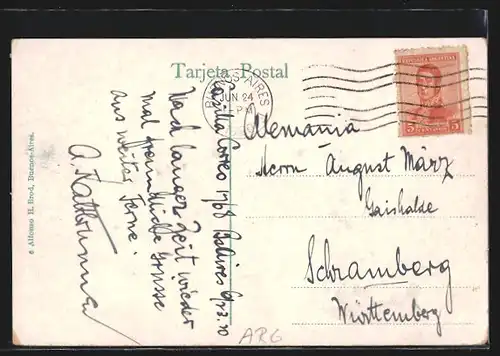 Tarjeta Postal
BUENOS AIRES
JUN 24
REPUBLICA ARGENTINA
5 CENTAVOS 5
Alemania
Herrn August März
Gaishalde
Schramberg
Württemberg
Casilla Correo 1768 Baires
Nach langer Zeit wieder
mal freundliche Grüsse
aus weiter Ferne.
A.
ARG
© Alfonso H. Brod, Buenos-Aires.